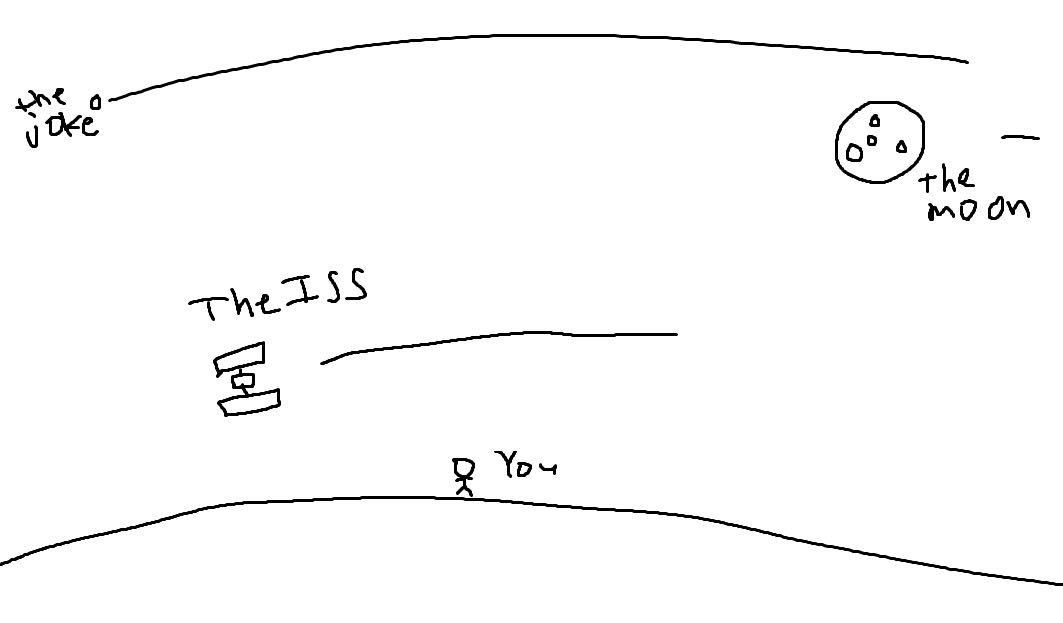 the
joke
the
moon
The ISS
You